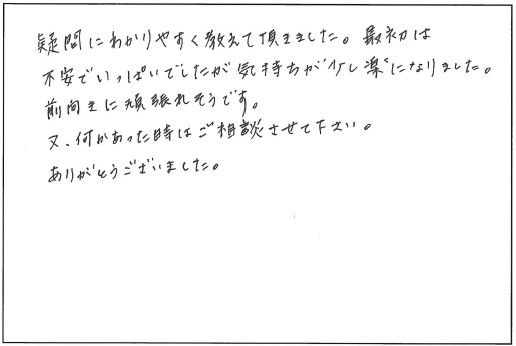 疑問にわかりやすく教えて頂きました。最初は
不安でいっぱいでしたが気持ちが少し楽になりました。
前向きに頑張れそうです。
又、何かあった時はご相談させて下さい。
ありがとうございました。